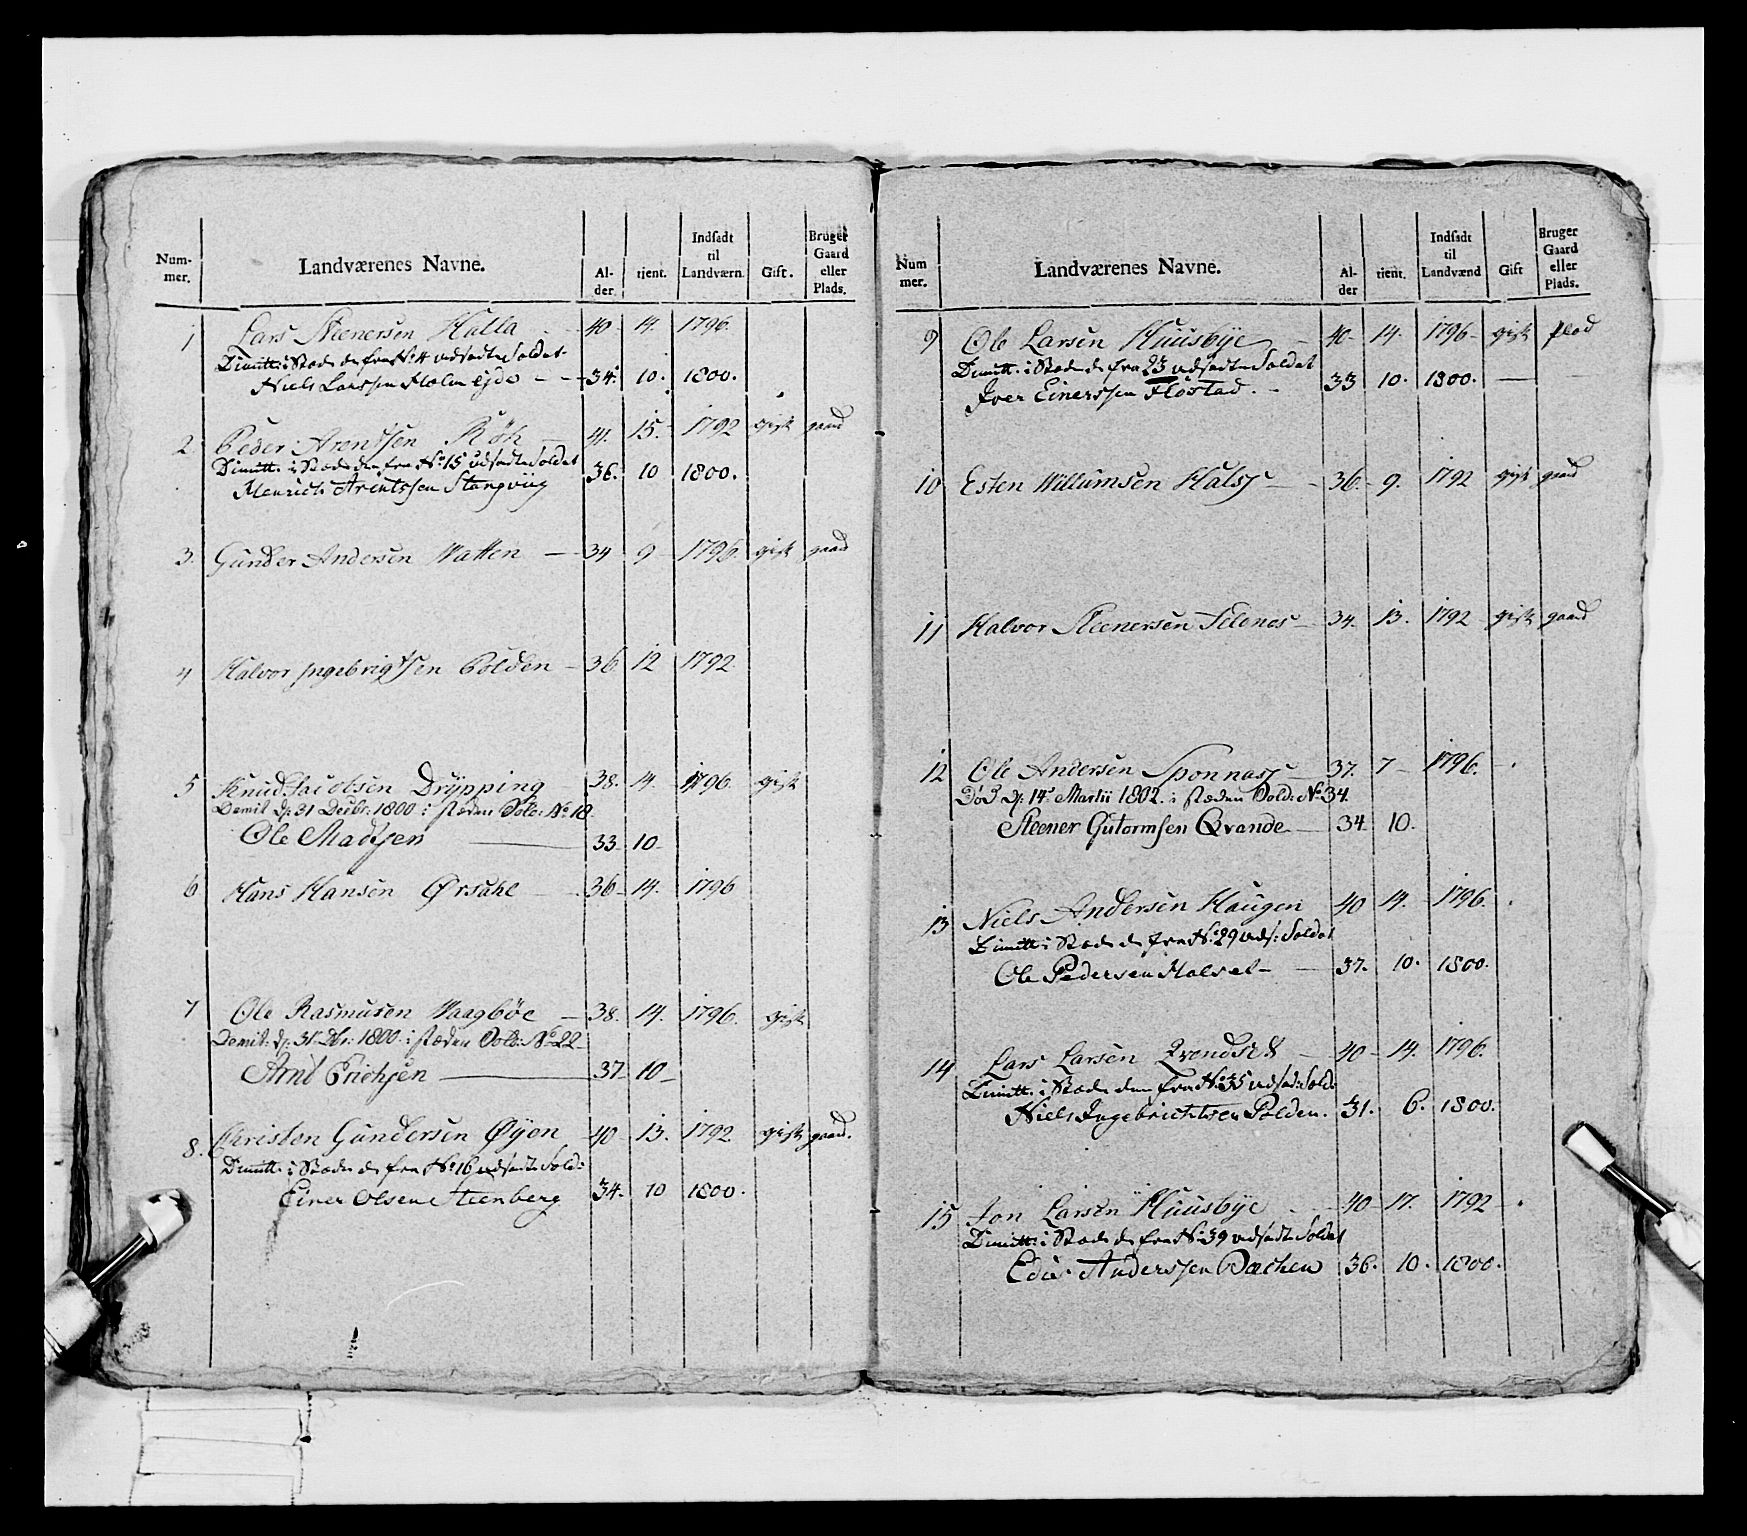 Num-
mer. Landværenes Navne. Al-
der. tjent. Indsadt
til
Landværn. Gift. Bruger
Gaard
eller
Plads.
1 Lars Steenersen Halla 40 14. 1796.
Dimitt: i Stæde de fra No 4 udsadte Soldat
Niels Larssen Holm ejde 34. 10. 1800.
2 Peder Arentsen Röh 41. 15. 1792 gift gaard
Dimitt. i Stæde den fra No 15 udsadte Soldat
Henrich Arentssen Stangvug 36. 10 1800.
3. Gunder Andersen Vatten 34 9 1796. gift gaard
4 Halvor Ingebrigtsen Polden 36 12 1792.
5 Knud Jacobsen Drypping 38. 14. 1796. gift
Demit d: 31 Decbr: 1800 i stæden Sold: No 18.
Ole Madsen 33 10
6 Hans Hansen Ørsahl 36 14. 1796
7 Ole Rasmusen Vaagböe 38. 14. 1796. gift
Demit: d: 31 Dbr: 1800. i stæden Sold: No 22
Arnt Erichsen 37 10
8. Christen Gundersen Øyen 40 13. 1792 gift gaard.
Dimitt. i Stæde de fra No 16 udsadte Sold:
Einer Olsen Steenberg 34. 10 1800.
Num
mer. Landværenes Navne. Al-
der tient. Indsadt
til
Landvænd Gift Bruger
Gaard
eller
Plads.
9 Ole Larsen Huusbye 40. 14. 1796 gift plad
Dimitt. i Stæde de fra 23 udsadte Soldat
Iver Einerssen Flöstad. 33 10. 1800.
10 Esten Willumsen Halss 36. 9. 1792 gift gaard
11 Halvor Steenersen Selenes 34. 13. 1792 gift gaard
12 Ole Andersen Sponnass 37. 7 1796.
Død d: 14 Martii 1802. i stæden Sold: No 34.
Steener Gutormsen Qvande 34. 10.
13 Niels Andersen Haugen 40 14. 1796.
Dimitt: i Stæde de fra No 29 uds: Soldat
Ole Pedersen Halset 37. 10. 1800.
14 Lars Larsen Qvendset 40 14. 1796.
Dimitt. i Stæde den fra No 35 udsad: Sold:
Niels Ingebrichtsen Polden. 31. 6. 1800.
15 Jon Larsen Huusbye 40 17. 1792
Dimitt: i Stæde de fra No 39 udsadte Soldat
Anderssen Bachen 36. 10. 1800.